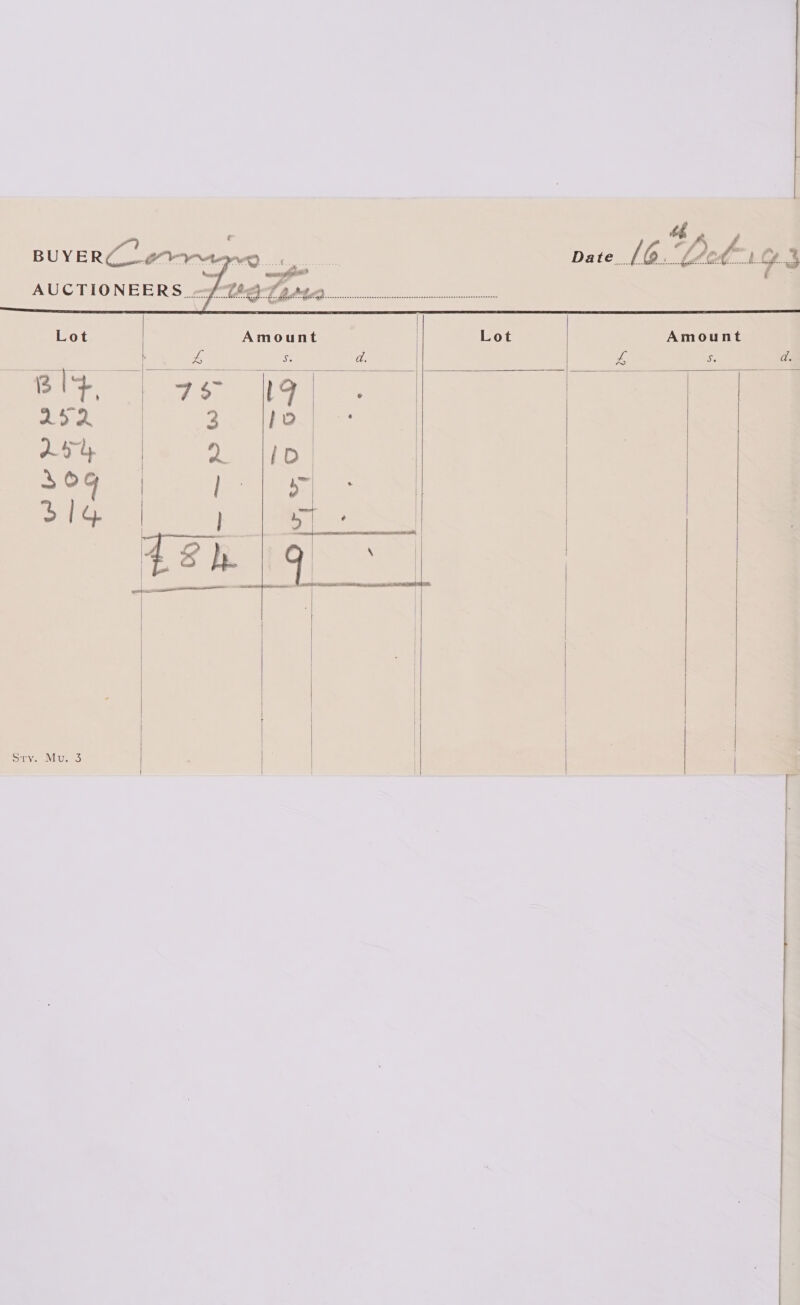 BUYER
Date 16th Oct 193
AUCTIONEERS
Lot Amount Lot Amount
£ s. d. £ s. d.
75 19 .
252 3 10 .
254 2 10
309 1 5 .
314 1 5 .
484 9
Sry. Mu. 3